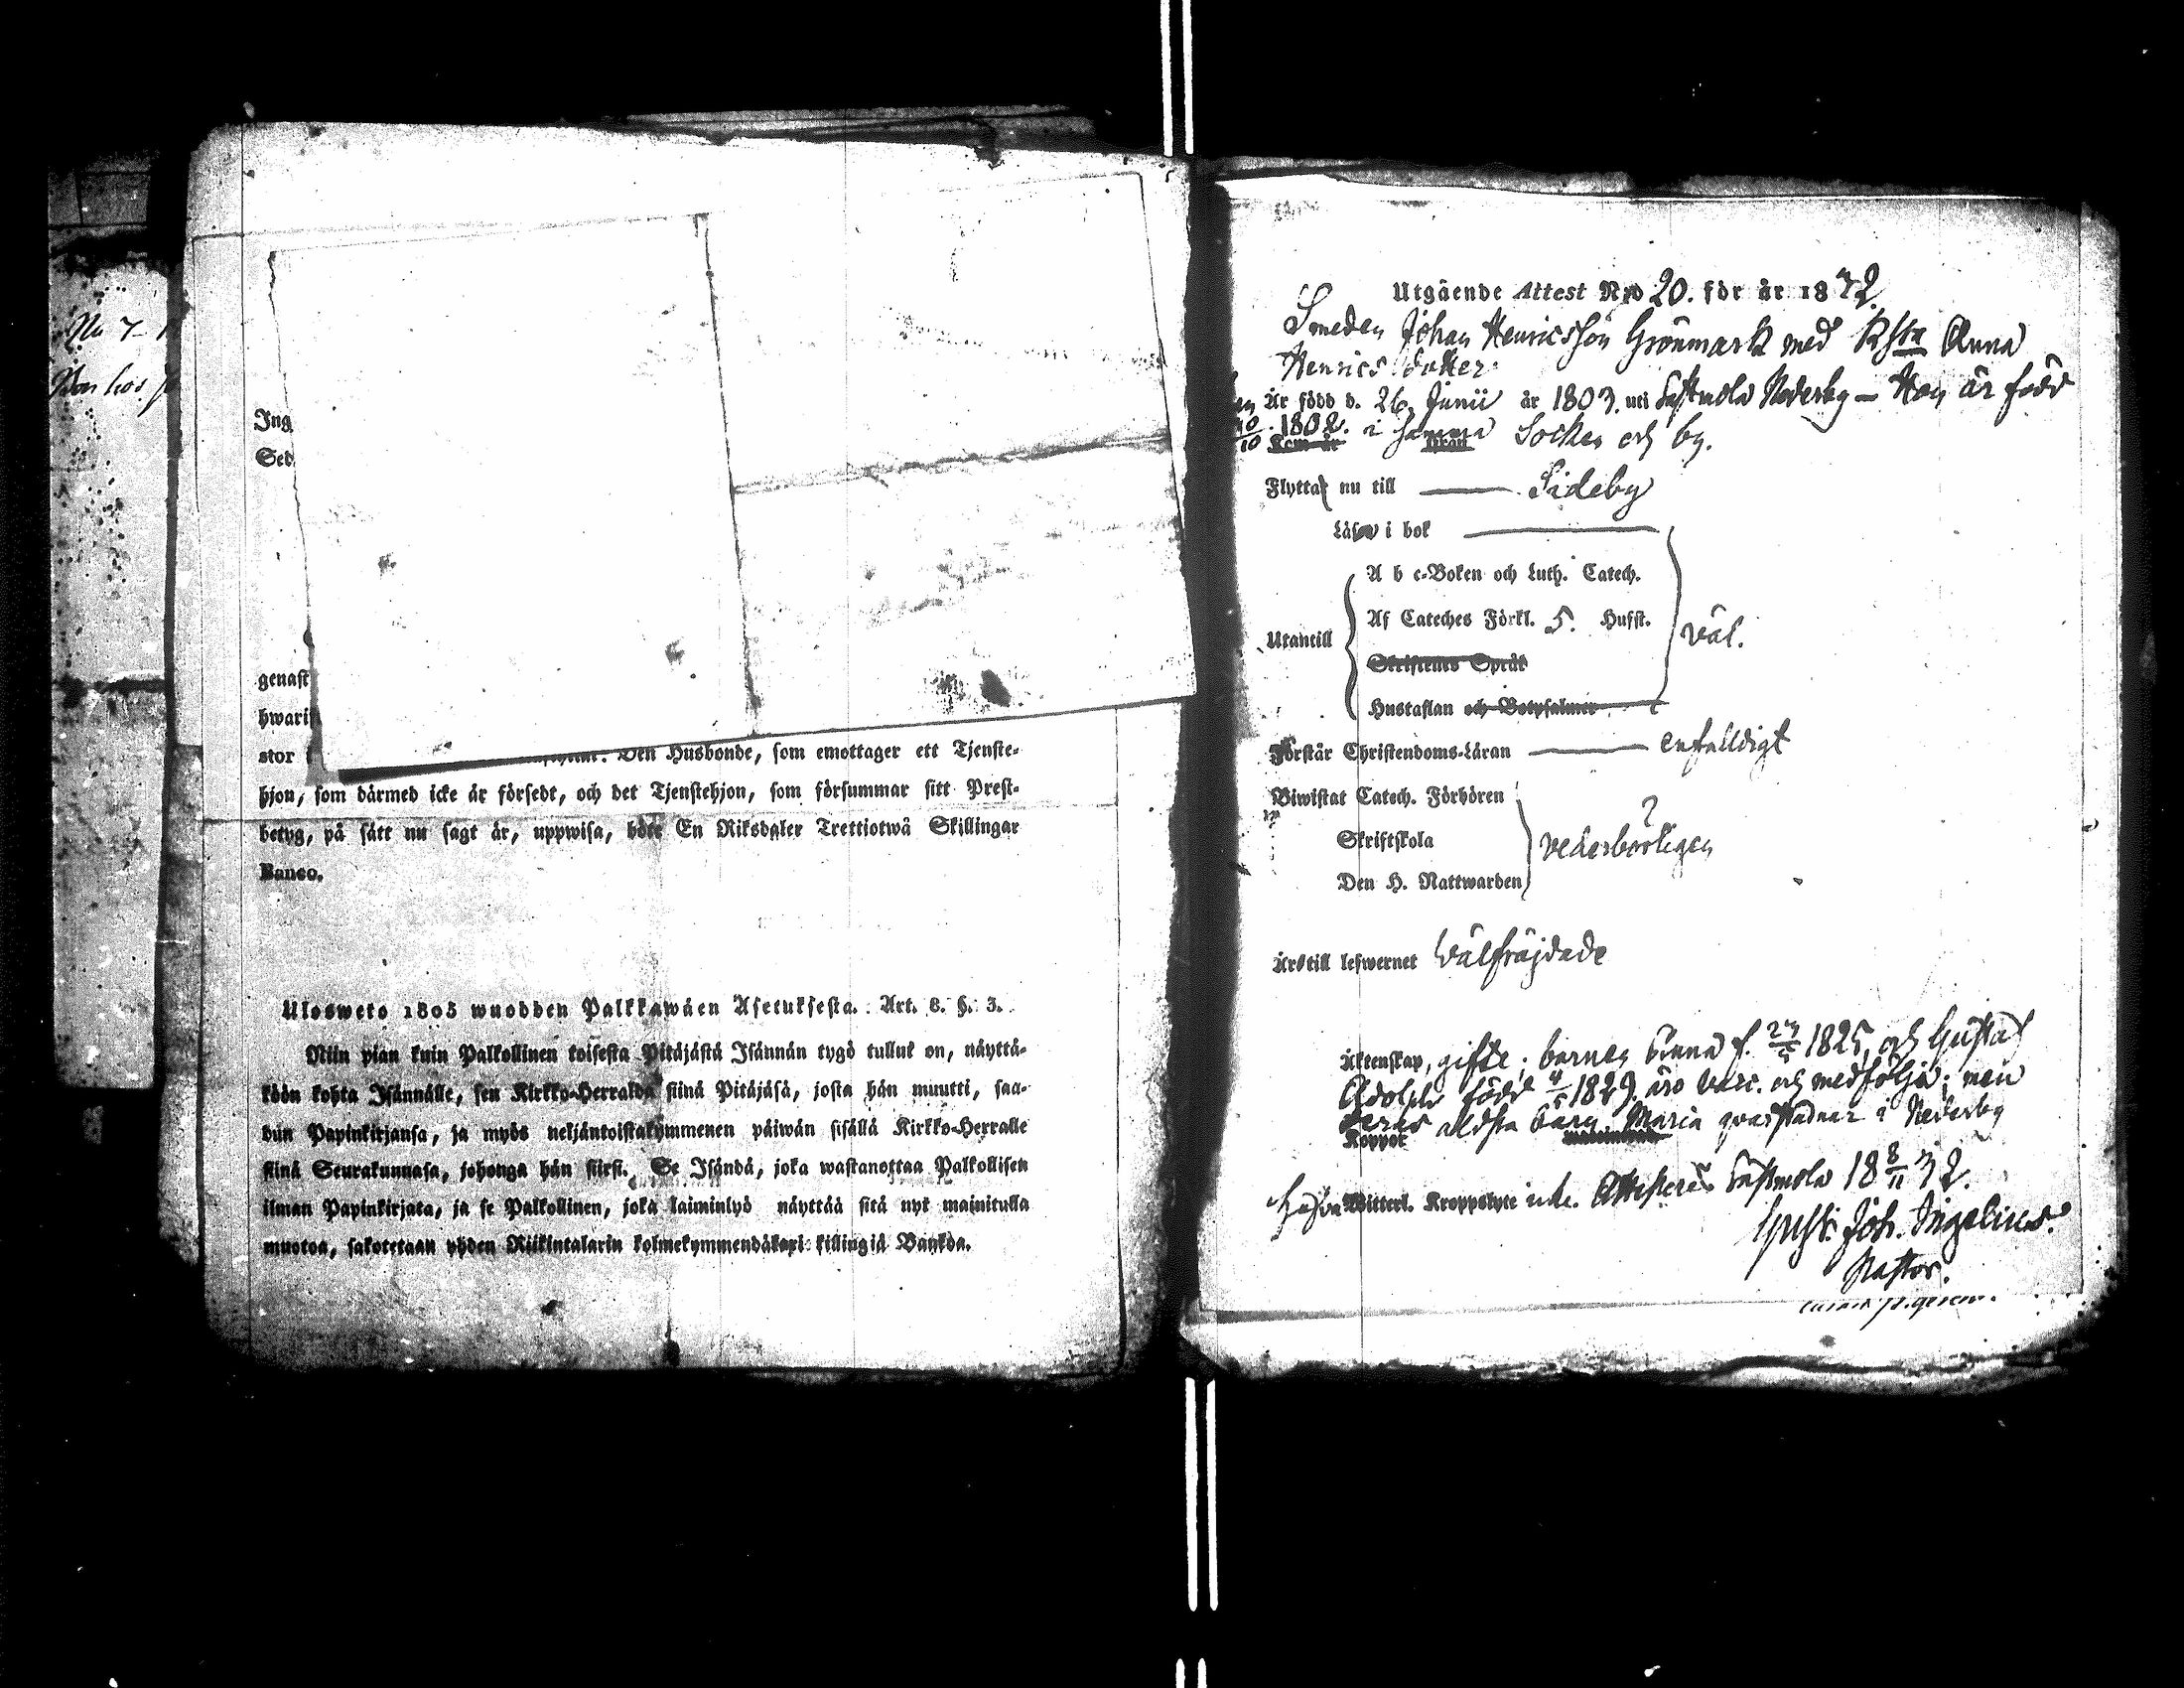 No 7
Ing
Sed
genast
hwari
stor
Den Husbonde, som emottager ett Tjenste-
hjon, som därmed icke är försedt, och det Tjenstehjon, som försummar sitt Prest-
betyg, på sätt nu sagt är, uppwisa, böte En Riksdaler Trettiotwå Skillingar
Banco.
Ulosweto 1805 wuodden Palkkawäen Asetuksesta. Art. 8. §. 3.
Niin pian kuin Palkollinen toisesta Pitäjästä Isännän tygö tullut on, näyttä-
köön kohta Isännälle, sen Kirkko-Herralda siinä Pitäjäsä, josta hän muutti, saa-
dun Papinkirjansa, ja myös neljäntoistakymmenen päiwän sisällä Kirkko-Herralle
siinä Seurakunnasa, johonga hän siirsi. Se Isändä, joka wastanottaa Palkollisen
ilman Papinkirjata, ja se Palkollinen, joka laiminlyö näyttää sitä nyt mainitulla
muotoa, sakotetaan yhden Riikintalarin kolmekymmendäkaxi killingiä Bankoa.
Utgående Attest No 20. för år 1832.
Smeden Johan Henricsson Grönmark med hstr Anna
Henricsdotter
Är född d. 26 Junii år 1803. uti Sastmola Nederby — Han är född
10/10 1802. i samma Socken och by.
Kom år från
Flytta nu till — Sideby
Läser i bok
A b c-Boken och Luth. Catech.
Af Cateches Förkl. 5. Hufst.
Utantill
väl.
Skriftenes Språk
Hustaflan och Botpsalmer
Förstår Christendoms-Läran — enfaldigt
Biwistat Catech. Förhören
Skriftskola
vederbörligen
Den H. Nattwarden
Är till lefwernet Välfräjdade
Äktenskap, gifte; barnen Anna f. 1825, och Gustaf
Adolph född 1829. äro vacc. och medfölja; men
deras äldsta barn Maria qvarstadnar i Nederby
Koppor
Hafva Witterl. Kroppslyte icke. Attesteras Sastmola 18 8/11 32.
Gust. Joh. Ingelius.
Pastor.